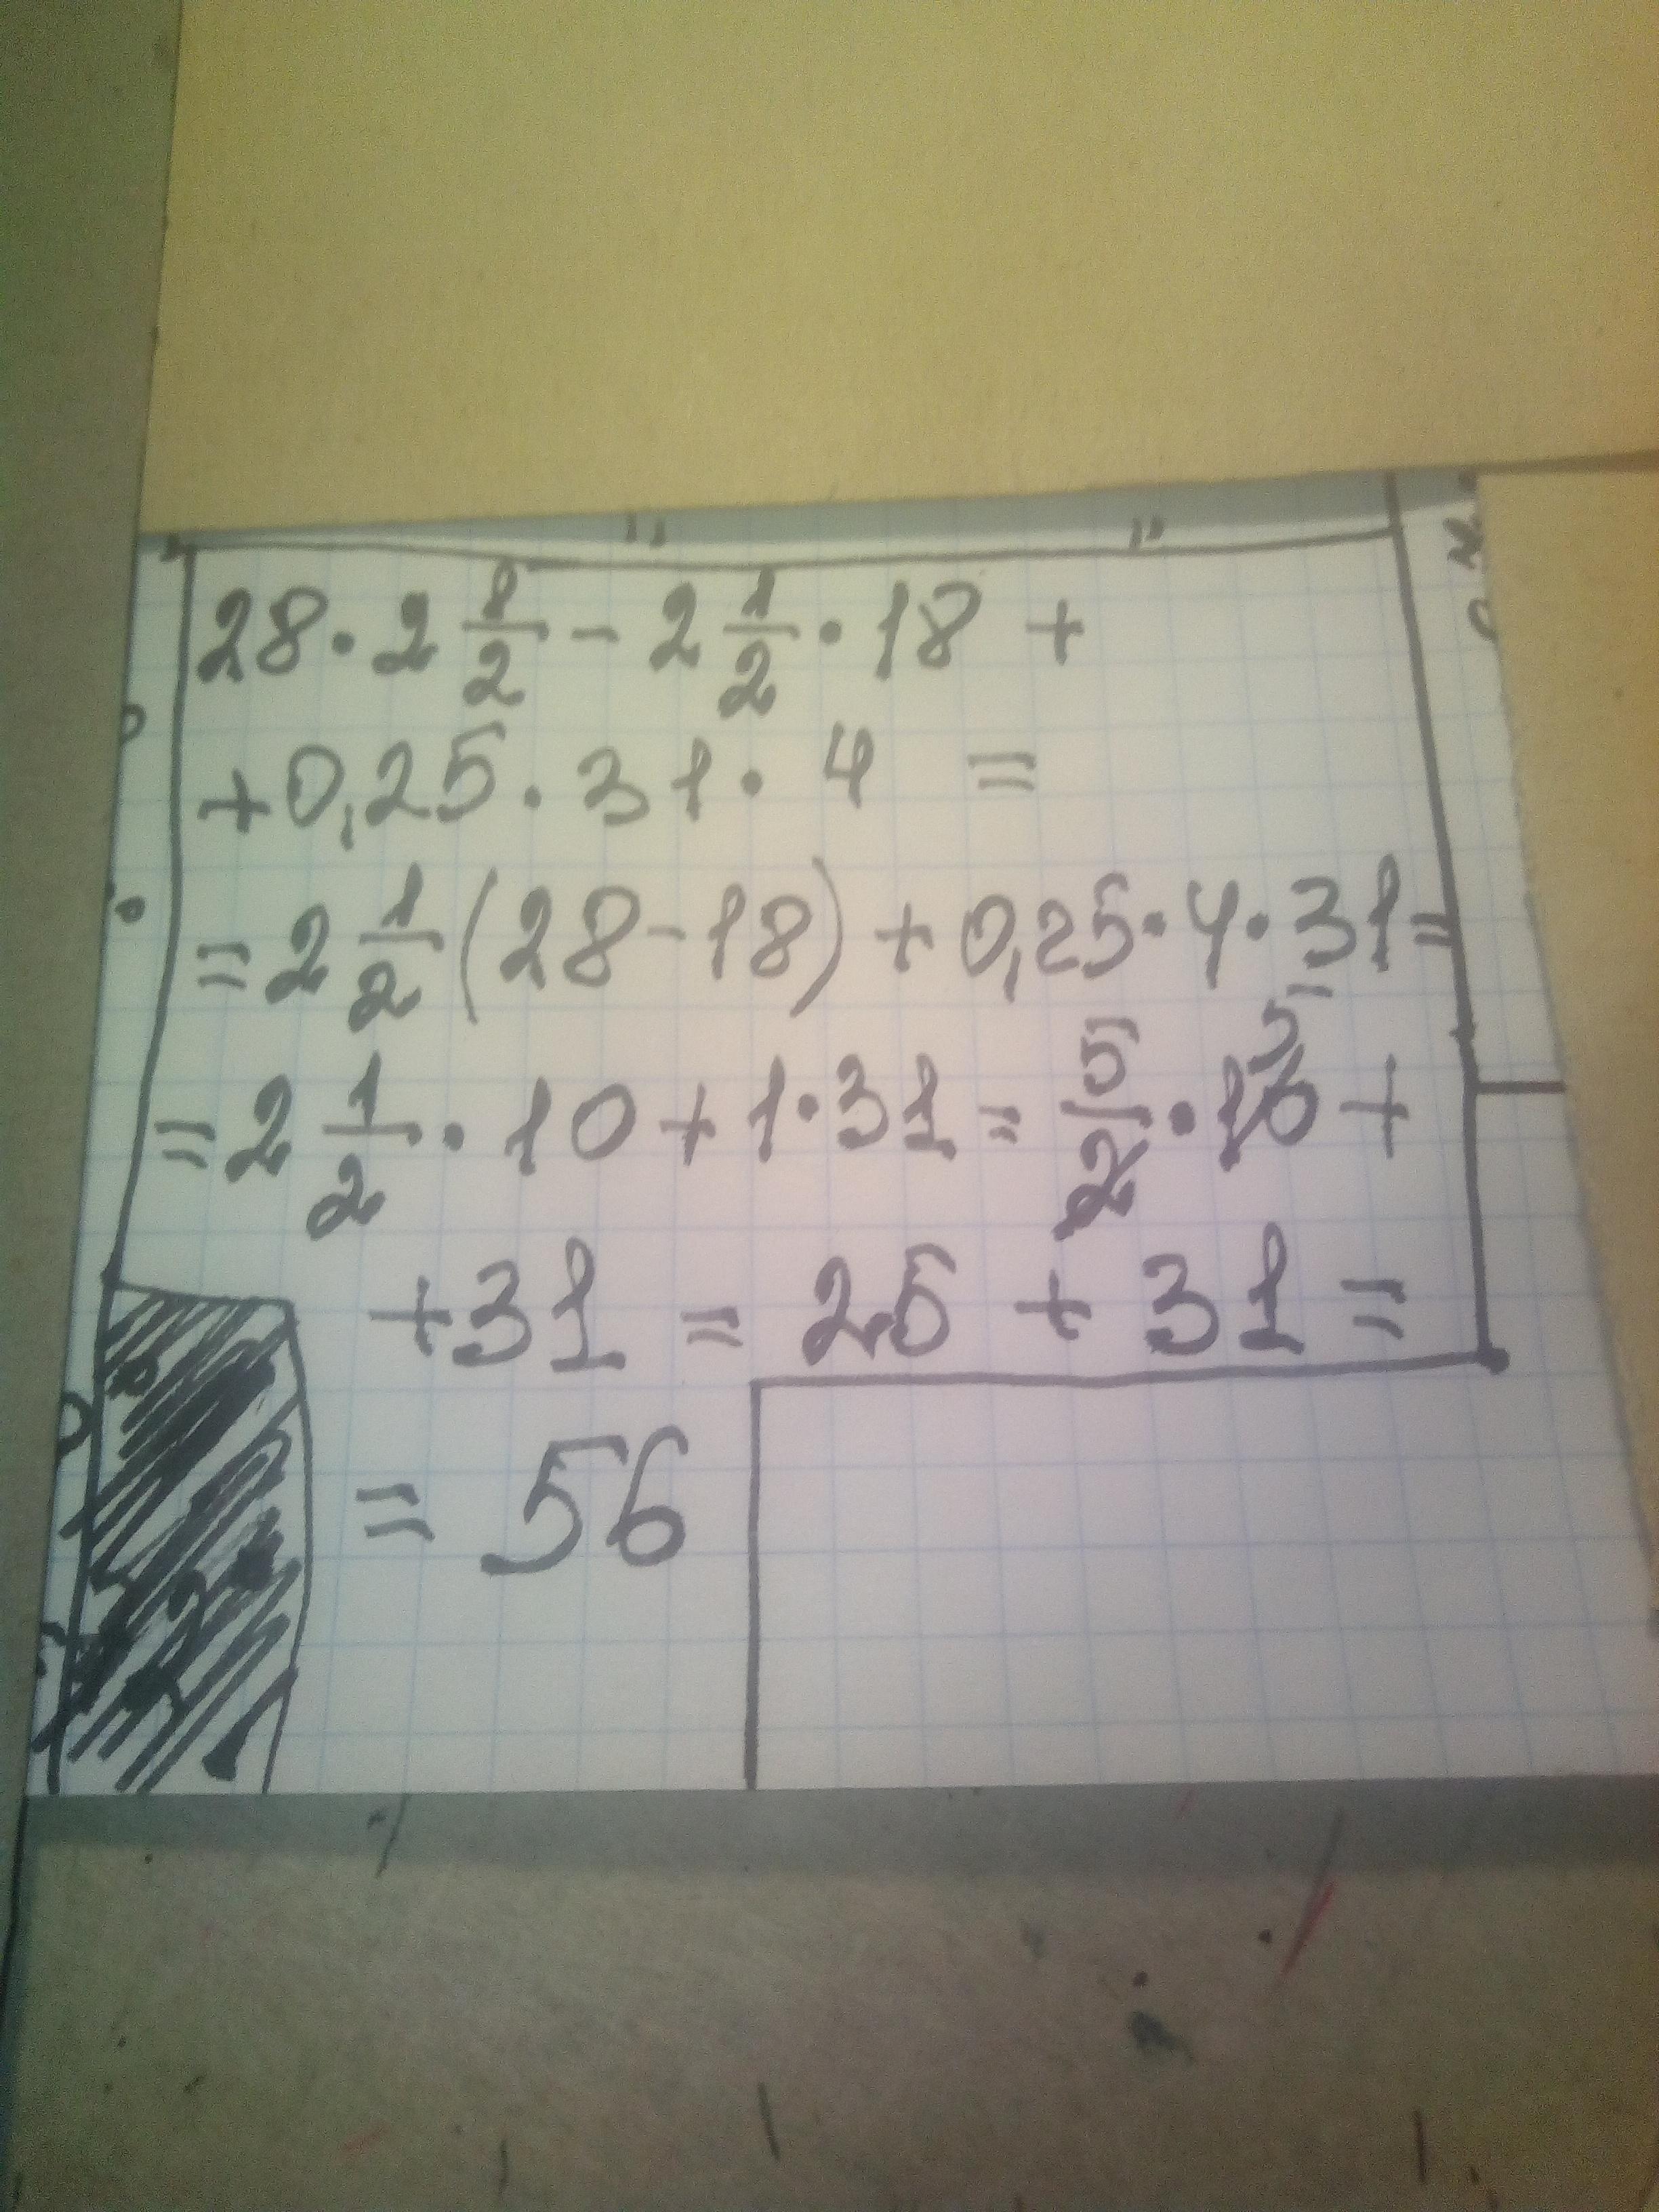 28 · 2 1/2 - 2 1/2 · 18 +
+ 0,25 · 31 · 4 =
= 2 1/2 (28 - 18) + 0,25 · 4 · 31 =
= 2 1/2 · 10 + 1 · 31 = 5/2 · 10 5 +
+ 31 = 25 + 31 =
= 56